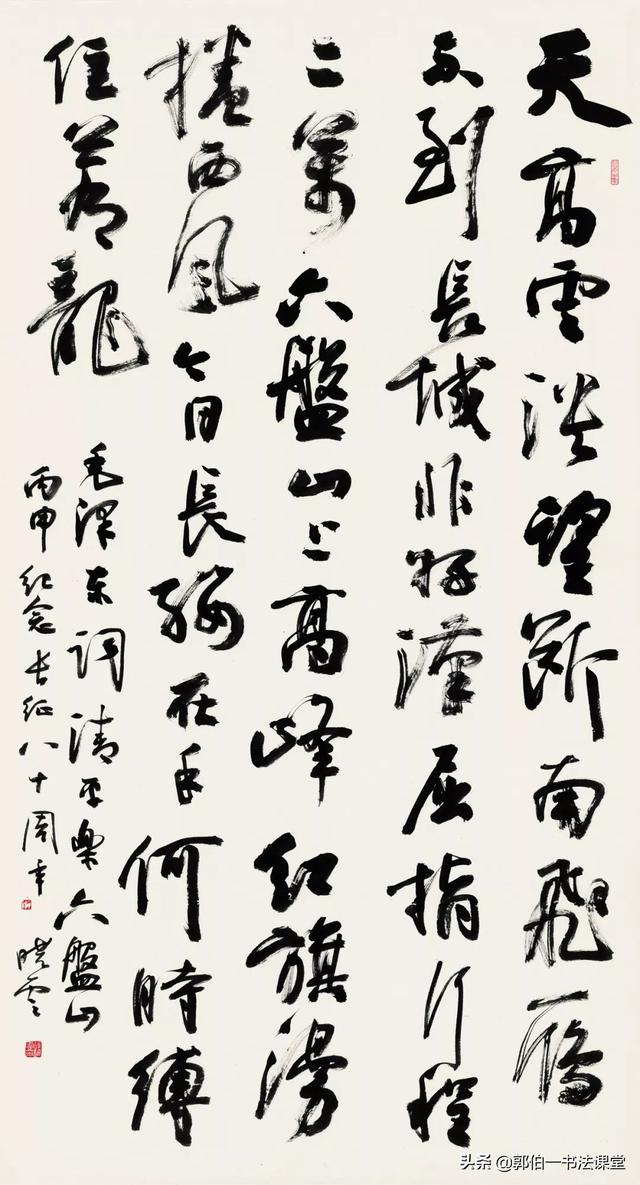 天高雲淡望斷南飛雁
不到長城非好漢屈指行程
二萬六盤山上高峰紅旗漫
捲西風今日長纓在手何時縛
住蒼龍
毛澤東詞清平樂六盤山
丙申紀念長征八十周年 曉雲
头条 @郭伯一书法课堂